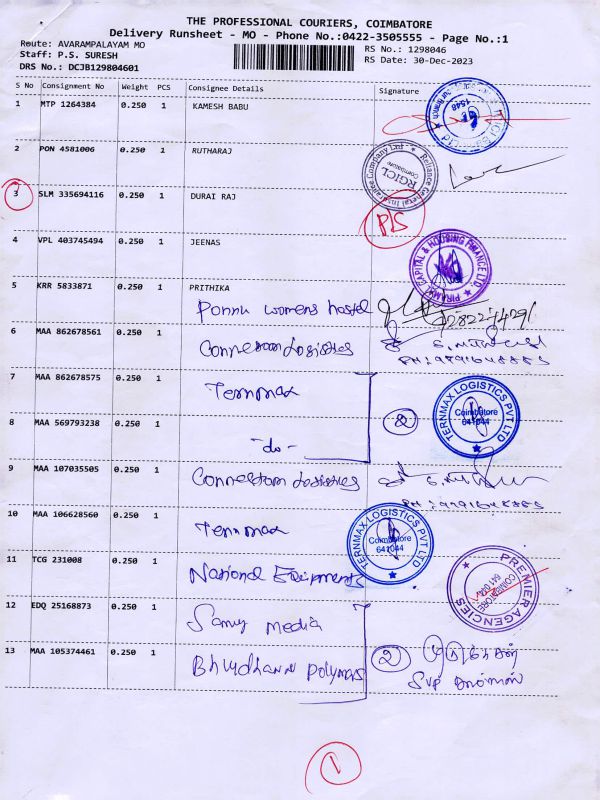 THE PROFESSIONAL COURIERS, COIMBATORE
Delivery Runsheet - MO - Phone No.:0422-3505555 - Page No.:1
Route: AVARAMPALAYAM MO
RS No.: 1298046
Staff: P.S. SURESH
RS Date: 30-Dec-2023
DRS No.: DCJB129804601
S No Consignment No Weight PCS Consignee Details Signature
1 MTP 1264384 0.250 1 KAMESH BABU
2 PON 4581006 0.250 1 RUTHARAJ
Reliance General Insurance Company Ltd
RGICL
Coimbatore
3 SLM 335694116 0.250 1 DURAI RAJ
4 VPL 403745494 0.250 1 JEENAS
PIRAMAL CAPITAL & HOUSING FINANCE LTD.
5 KRR 5833871 0.250 1 PRITHIKA
Ponnu womens hostel
6 MAA 862678561 0.250 1 Connectom Logistics
7 MAA 862678575 0.250 1 Ternmax
8 MAA 569793238 0.250 1 -do- 2
TERNMAX LOGISTICS PVT LTD
Coimbatore
641044
9 MAA 107035505 0.250 1 Connectom Logistics
10 MAA 106628560 0.250 1 Ternmax
TERNMAX LOGISTICS PVT LTD
Coimbatore
641044
11 TCG 231008 0.250 1 National Equipments
PREMIER AGENCIES
COIMBATORE
12 EDQ 25168873 0.250 1 Samy media
13 MAA 105374461 0.250 1 Polymers 2
1